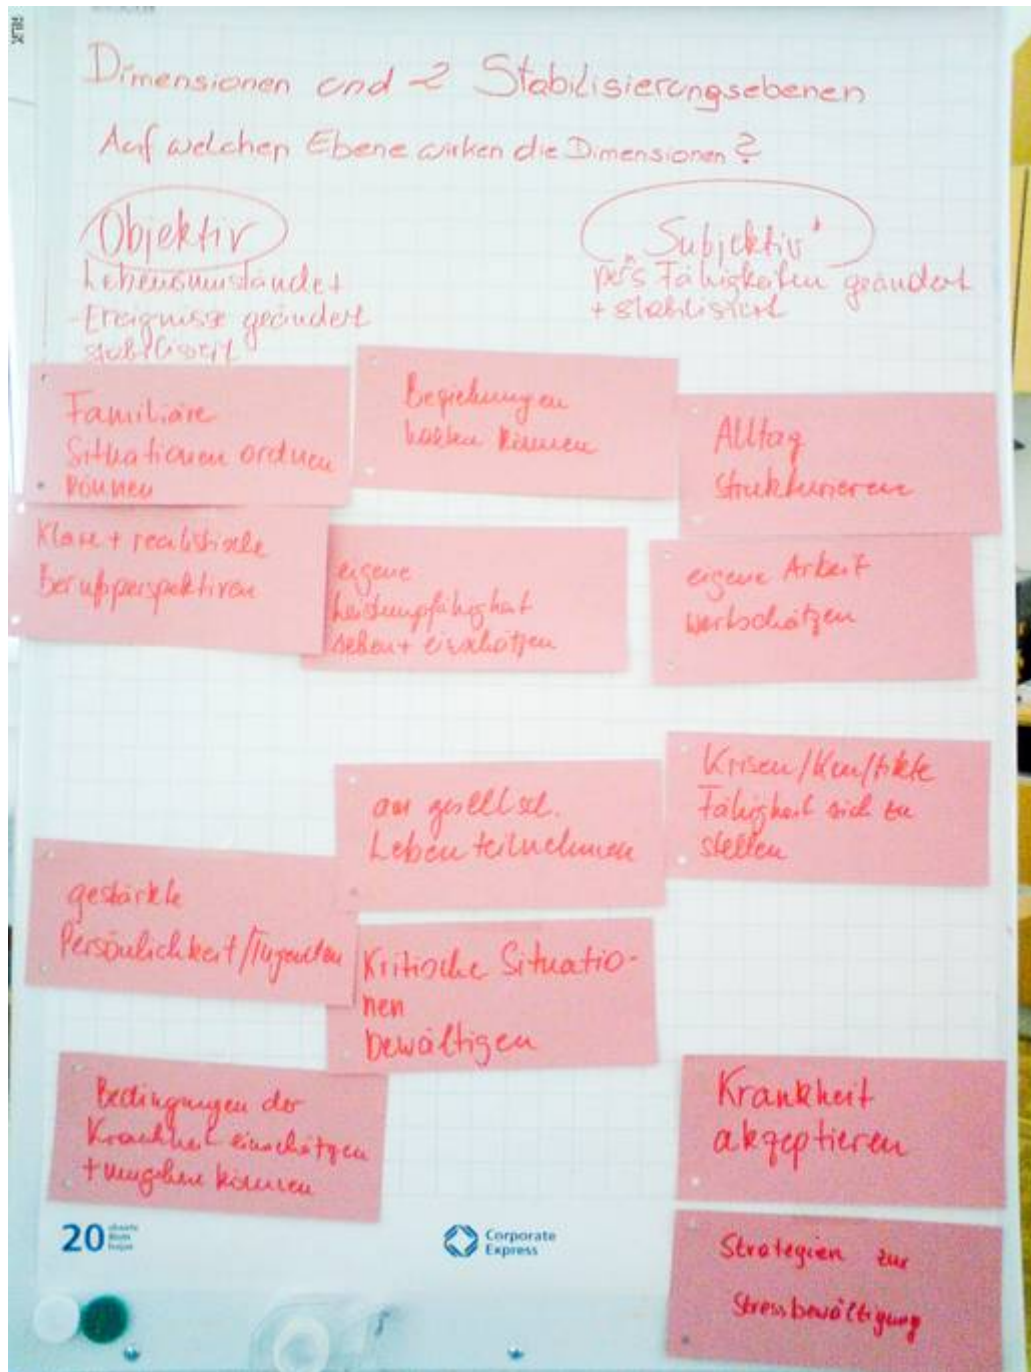 Dimensionen und 2 Stabilisierungsebenen
Auf welchen Ebene wirken die Dimensionen?
Objektiv
Lebensumstände +
-Ereignisse geändert
stabilisiert
Subjektiv
pers Fähigkeiten geändert
+ stabilisiert
Familiäre
Situationen ordnen
können
Beziehungen
halten können
Alltag
strukturieren
Klare + realistische
Berufsperspektiven
eigene
Leistungsfähigkeit
sehen + einschätzen
eigene Arbeit
wertschätzen
am gesellsch.
Leben teilnehmen
Krisen/Konflikte
Fähigkeit sich zu
stellen
gestärkte
Persönlichkeit/Tugenden
Kritische Situatio-
nen
bewältigen
Bedingungen der
Krankheit einschätzen
+ umgehen können
Krankheit
akzeptieren
Strategien zur
Stressbewältigung
20
Corporate
Express